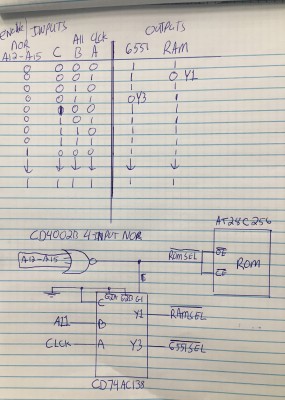 Enable INPUTS OUTPUTS
NOR A11 CLCK
A12-A15 C B A 6551 RAM
0 0 0 0 1 1
0 0 0 1 1 0 Y1
0 0 1 0 1 1
0 0 1 1 0 Y3 1
0 1 0 0 1 1
0 1 0 1 1 1
0 1 1 0 1 1
0 1 1 1 1 1
1 0 0 0 1 1
1 1 1 1 1 1
CD4002B 4 INPUT NOR
AT28C256
A12-A15
ROMSEL
OE
CE
ROM
E
C G2A G2B G1
A11 B Y1 RAMSEL
CLCK A Y3 6551SEL
CD74AC138